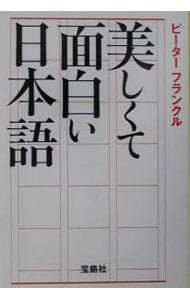 ピーター フランクル
美しくて
面白い
日本語
宝島社